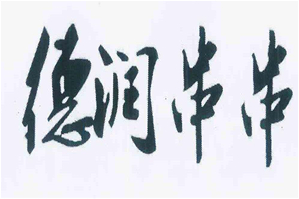 德润串串